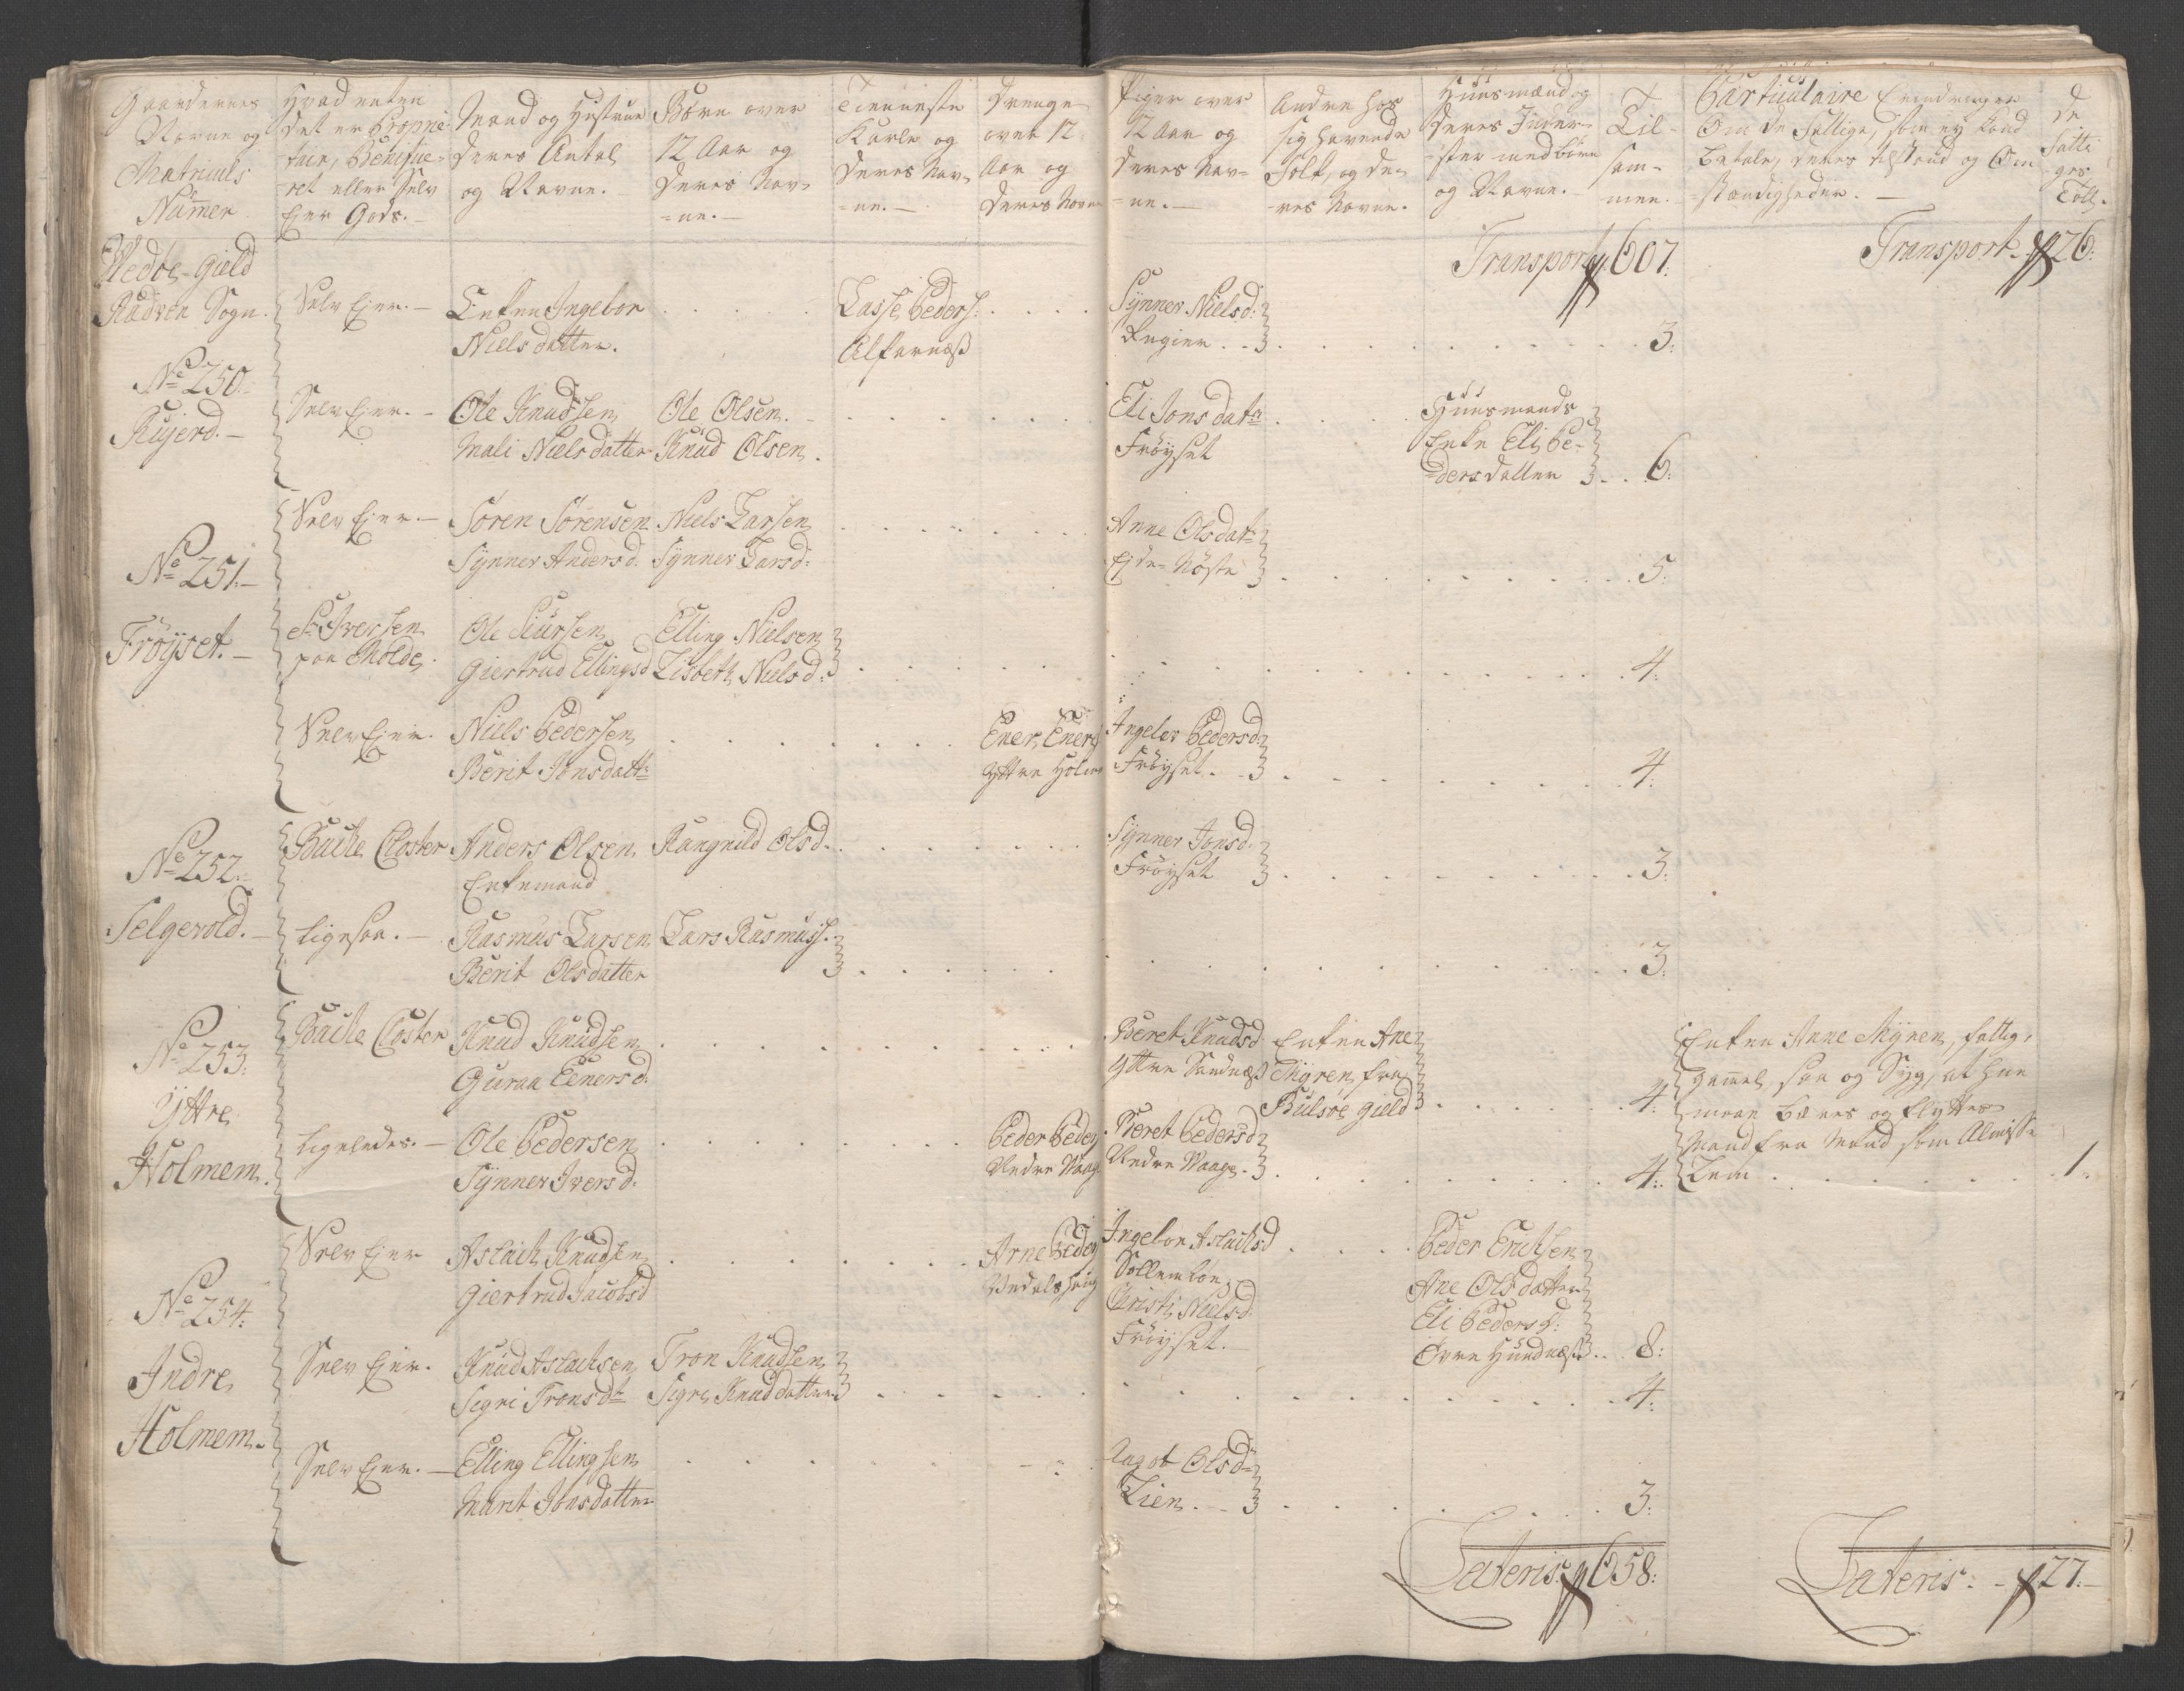 Gaardernes
Navne og
Matriculs
Nummer
Hvad enten
det er Proprie-
tair, Benifice-
ret eller Selv
Ejer Gods.-
Mand og Hustrue
Deres Antal
og Navne.
Børn over
12 Aar og
Deres Nav-
=ne.-
Tienneste
Karle og
Deres Nav-
=ne.-
Drenge
over 12
Aar og
Deres Navne
Piger over
12 Aar og
Deres Nav-
=ne.-
Andre hos
sig havende
Folk, og de-
=res Navne.
Huusmænd og
Deres Inder-
=ster med børn
og Navne.-
Til-
sam-
men.
Partuulaire Erindringer
Om de Fattige, som ey kand
betale, deres tilstand og Om-
=stændigheder.-
De
fatti
ges
Tall.
Transport 607:
Transport 26:
Wedøe Gield
Rødven Sogn.
Selv Ejer.-
Enken Ingebor
Nielsdatter.
Lasse Peders:
Alfarnæß
Synner Nielsd:
3:
No 250.
Selv Ejer.-
Ole Knudsen
Mali Nielsdatter
Ole Olsen.
Knud Olsen.
Eli Jonsdatr
Frøyset
Huusmands
Enke Eli Pe-
=dersdatter
6:
No 251.-
Frøyset.-
Selv Ejer.-
Søren Sørensen
Synner Andersd.
Niels Larsen
Synner Larsd:
Anne Olsdatr
Ejde-Nøste
5:
Sr Iversen
paa Molde.
Ole Siursen
Giertrud Ellingsd
Elling Nielsen
Lisbeth Nielsd:
4:
Selv Ejer.
Niels Pedersen
Berit Jonsdattr
Ener Eners
Yttre Holm
Ingeler Pedersd:
Frøyset.
4:
No 252.
Selgevold.-
Bache Closter
Anders Olsen
Enkemand
Rangnild Olsd.
Synner Jonsd.
Frøyset
3:
ligesaa.-
Rasmus Larsen
Berit Olsdatter
Lars Rasmuss.
3:
No 253:
Yttre
Holmem.
Bache Closter
Knud Knudsen
Guraa Eenersd.
Beret Knudsd
Yttre Sandnæß
Enken Ane
Myren fra
Bulsøe gield
4:
Enken Anne Myren, fattig,
gammel, saa og Syg, at hun
maae bæres og flyttes
Mand fra Mand som Almisse
Lem
1:
ligeledes.-
Ole Pedersen
Synner Iversd.
Peder Peders
Nedre Vaage
Beret Pedersd
Nedre Vaage.
4:
No 254:
Indre
Holmem.
Selv Ejer
Aslach Knudsen
Giertrud Jacobsd
Arne Peders
Ingebor Aslachsd
Christi Nielsd
Frøyset.-
Peder Erichsen
Ane Olsdatter
Eli Pedersd:
Øvre Hundnæß
8:
Selv Ejer.
Knud Aslachsen
Sigri Tronsdr
Tron Knudsen
Sigri Knuddatter
4:
Selv Ejer.-
Elling Ellingsen
Marit Jonsdatter
Olsdr
Lien.
3:
Lateris 658:
Lateris 27.-